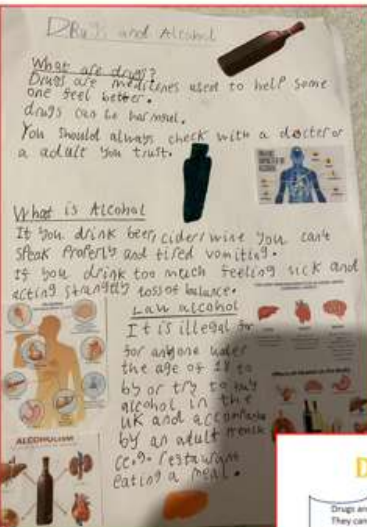 Drugs and Alcohol
What are drugs?
Drugs are medicines used to help some
one feel better.
drugs can be harmful.
You should always check with a docter or
a adult you trust.
What is Alcohol
If you drink beer, cider, wine you can't
speak properly and tired vomiting.
If you drink too much feeling sick and
acting strangely loss of balance.
Law alcohol
It is illegal for
for anyone under
the age of 18 to
by or try to buy
alcohol in the
UK and
by an adult
(e.g. restaurant
eating a meal.
ALCOHOLISM
D
Drugs are
They can